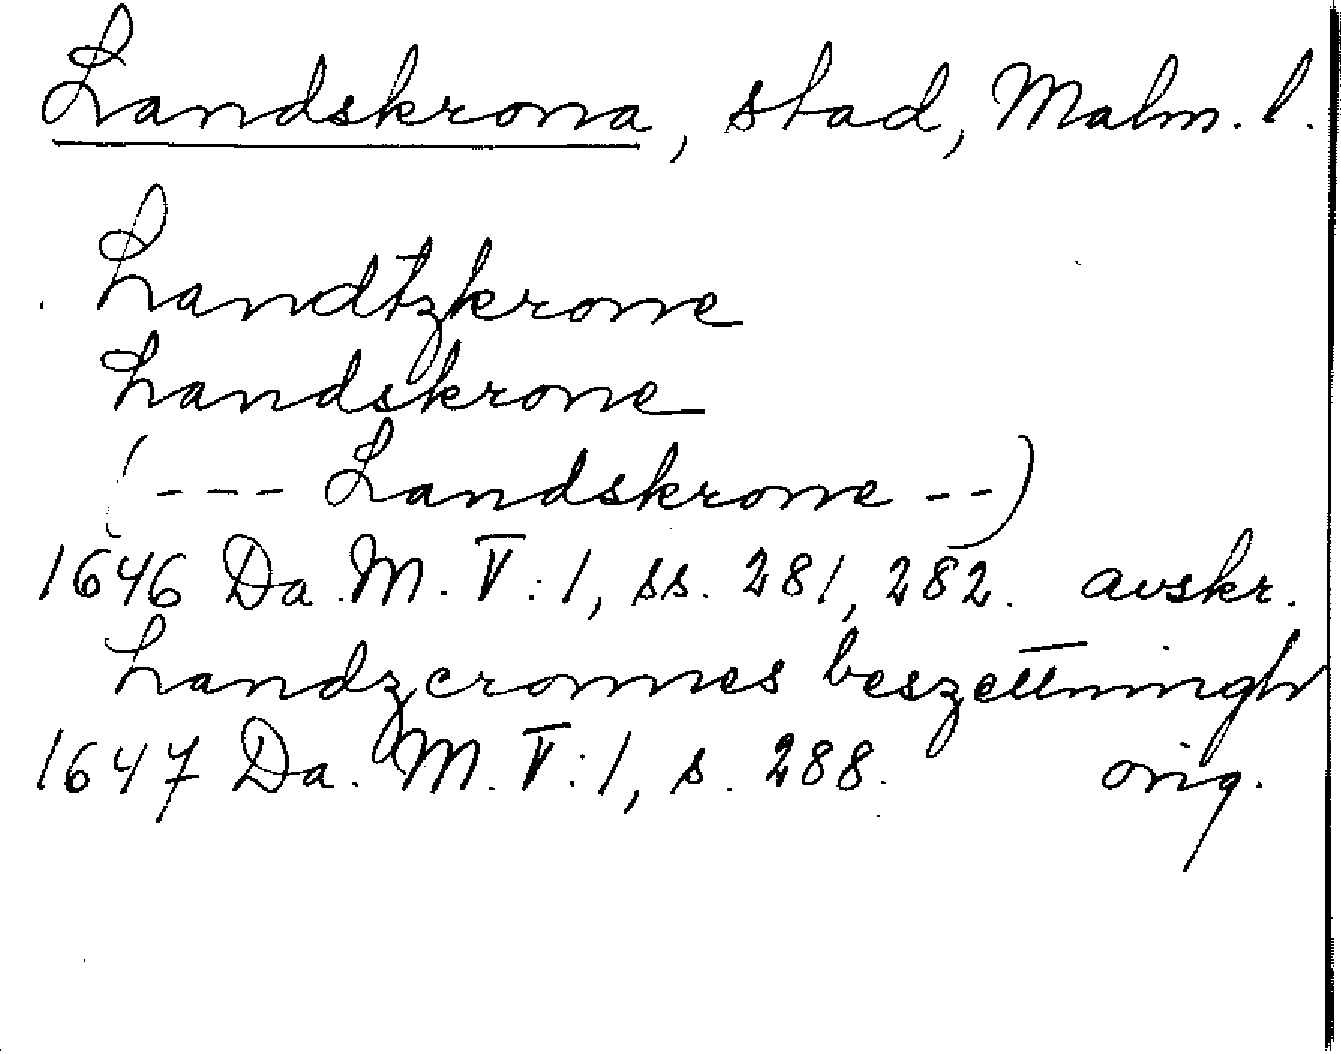 Landskrona, stad, Malm. l.
Landtzkrone
Landskrone
(--- Landskrone --)
1646 Da. M. V:1, ss. 281, 282. avskr.
Landzcronnes beszettningh
1647 Da. M. V:1, s. 288. orig.